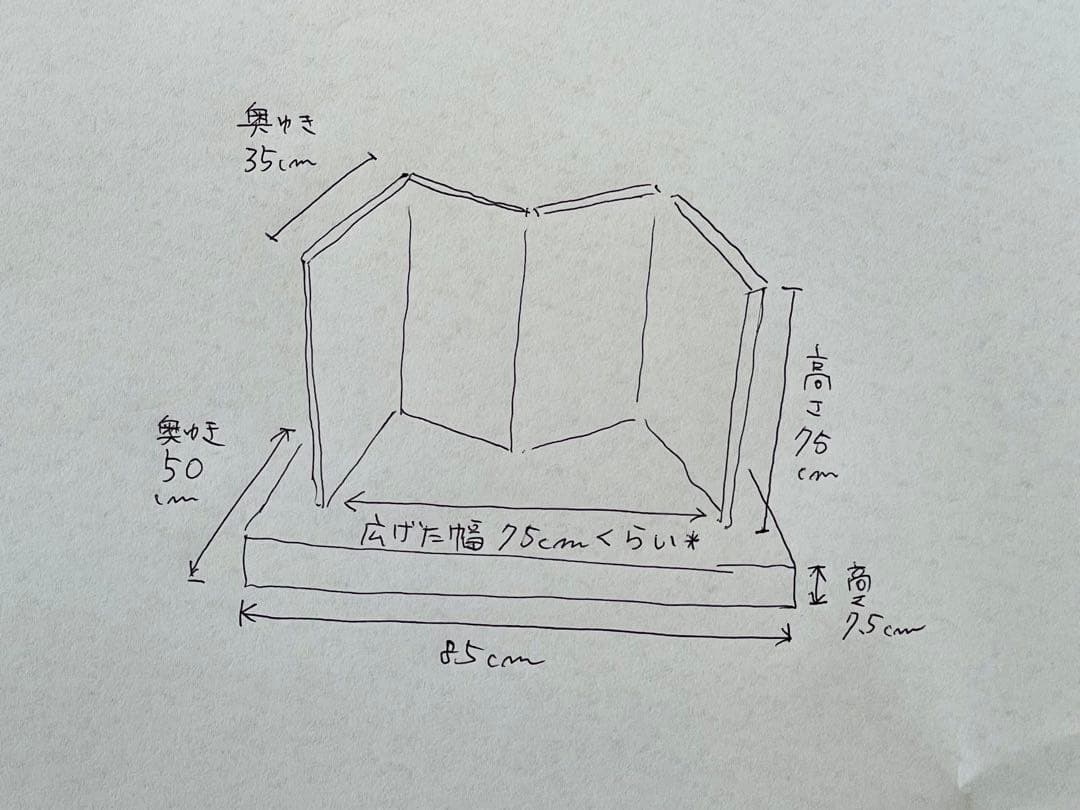 奥ゆき
35cm
奥ゆき
50
cm
高さ
75
cm
広げた幅 75cmくらい*
高さ
7.5cm
85cm